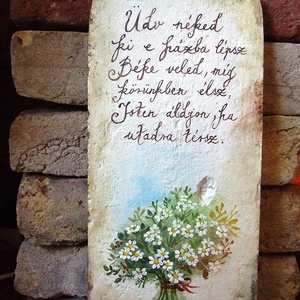 Üdv néked
ki e házba lépsz
Béke veled, míg
körünkben élsz
Isten áldjon, ha
utadra térsz.